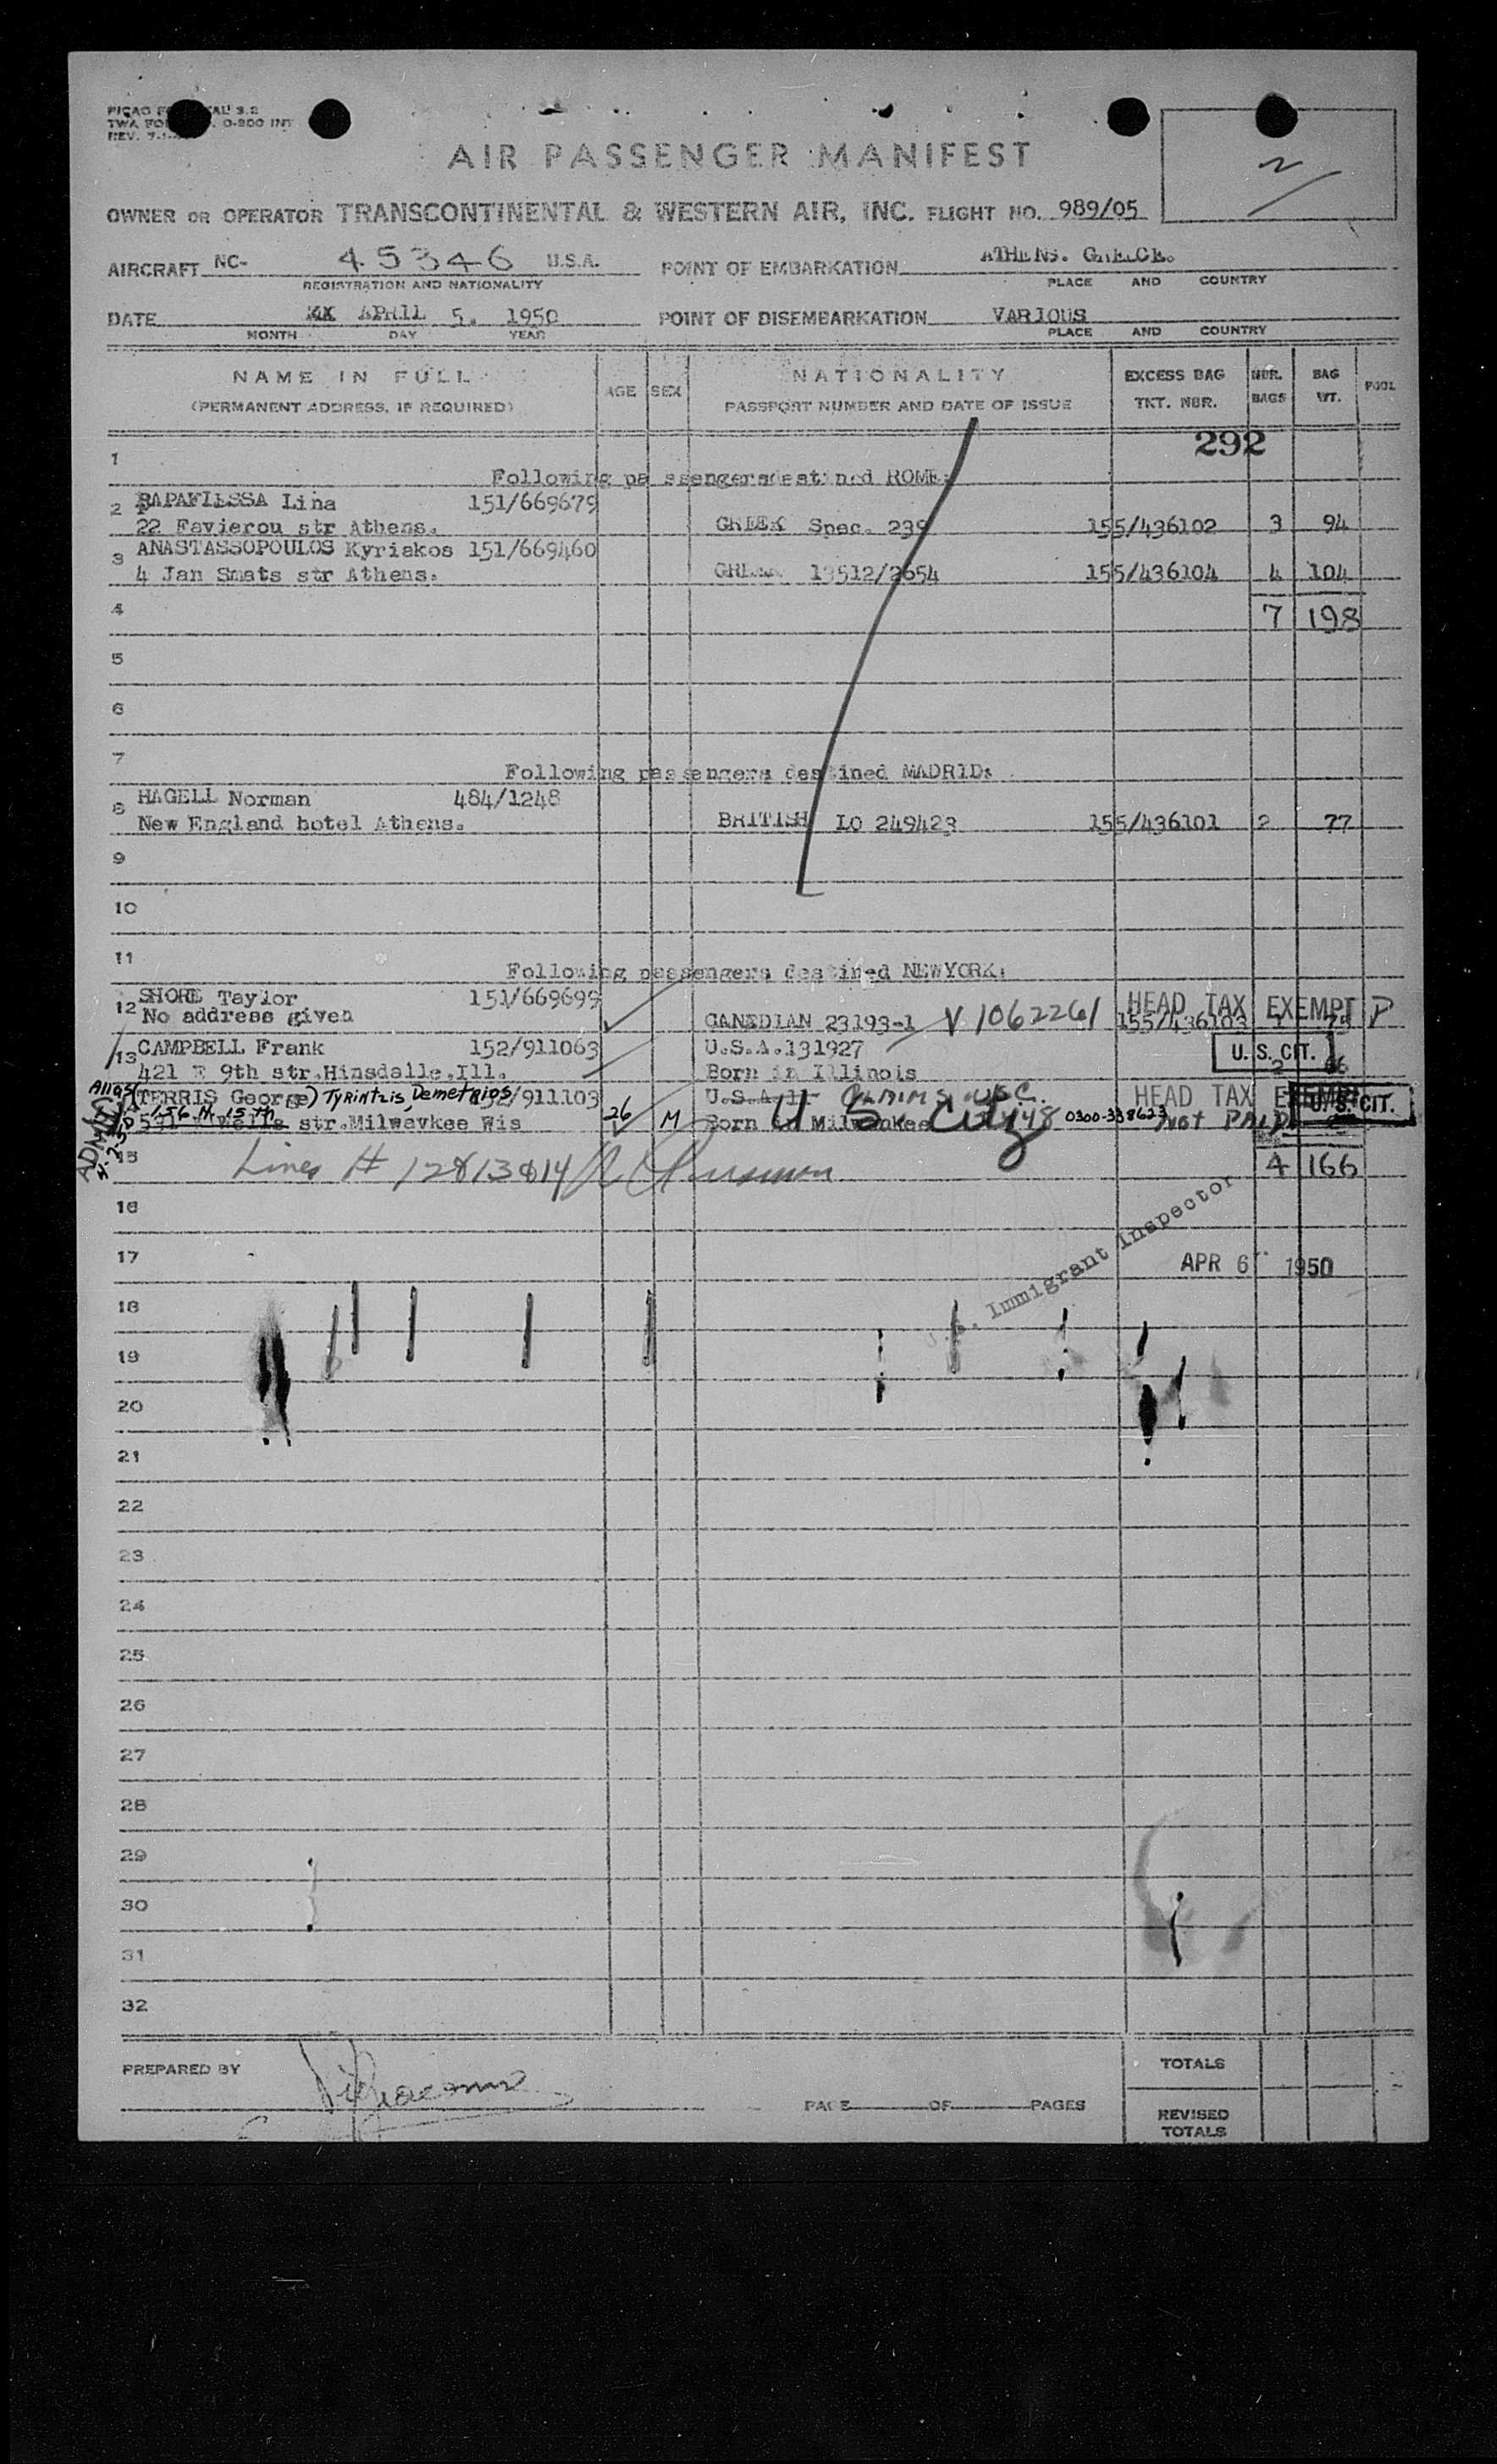 TWA
AIR PASSENGER MANIFEST
OWNER OR OPERATOR TRANSCONTINENTAL & WESTERN AIR, INC. FLIGHT NO. 989/05
AIRCRAFT NC- 45346 U.S.A. POINT OF EMBARKATION ATHENS. GREECE.
REGISTRATION AND NATIONALITY PLACE AND COUNTRY
DATE APRIL 5. 1950 POINT OF DISEMBARKATION VARIOUS
MONTH DAY YEAR PLACE AND COUNTRY
NAME IN FULL AGE SEX NATIONALITY EXCESS BAG NBR. BAG POOL
(PERMANENT ADDRESS, IF REQUIRED) PASSPORT NUMBER AND DATE OF ISSUE TKT. NBR. BAGS WT.
292
1
Following pa ssengers destined ROME:
2 PAPAFLESSA Lina 151/669679
22 Favierou str Athens. GREEK Spec. 239 155/436102 3 94
3 ANASTASSOPOULOS Kyriakos 151/669460
4 Jan Smats str Athens. 13512/2654 155/436104 4 104
4 7 198
5
6
7
Following passengers destined MADRID:
8 HAGELL Norman 484/1248
New England hotel Athens. BRITISH LO 249423 155/436101 2 77
9
10
11
Following passengers destined NEWYORK:
12 SHORE Taylor 151/669699 HEAD TAX EXEMPT P
No address given CANEDIAN 23193-1 V 1062261 155/436103
13 CAMPBELL Frank 152/911063 U.S.A.131927 U. S. CIT.
421 E 9th str.Hinsdalle.Ill. Born in Illinois 2 66
Alias (TERRIS George) Tyrintzis, Demetrios /911103 U.S.A. Claims USC. HEAD TAX EXEMPT U. S. CIT.
15th str.Milwavkee Wis 26 M Born Milwaukee U S Citz 0300-338623 not PAID
15 Lines # 12 & 13 & 14 4 166
16
Immigrant Inspector
17 APR 6 1950
18
19
20
21
22
23
24
25
26
27
28
29
30
31
32
PREPARED BY TOTALS
PAGE OF PAGES
REVISED
TOTALS